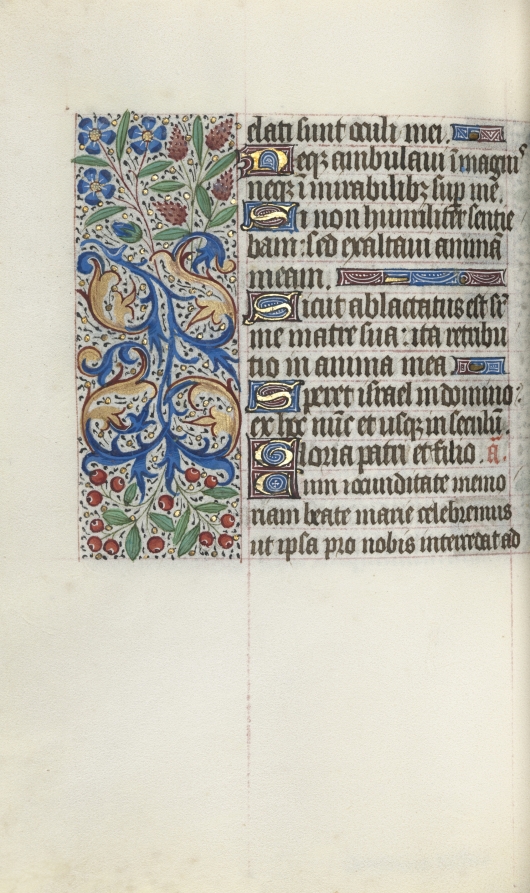 elati sunt oculi mei.
Neqz ambulaui ī magnis
neqz ī mirabilibz sup me.
Si non humiliter sentie
bam: sed exaltaui animā
meam.
Sicut ablactatus est sr̄
me matre sua: ita retribu
tio in anima mea
Speret israel in domino:
ex hoc nūc et usqz in seculū.
Gloria patri et filio. ā.
Cum iocunditate memo
riam beate marie celebremus
ut ipsa pro nobis intercedat ad